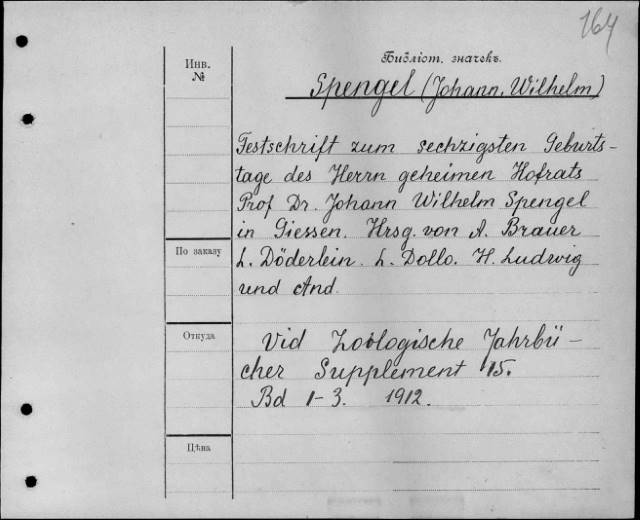 164
Библіот. значекъ.
Инв.
№
Spengel (Johann, Wilhelm)
Festschrift zum sechzigsten Geburts-
tage des Herrn geheimen Hofrats
Prof Dr. Johann Wilhelm Spengel
in Giessen. Hrsg. von A. Brauer
L. Döderlein. L. Dollo. H. Ludwig
und And.
По заказу
Откуда
Vid Zoologische Jahrbü-
cher Supplement 15.
Bd 1-3. 1912.
Цѣна